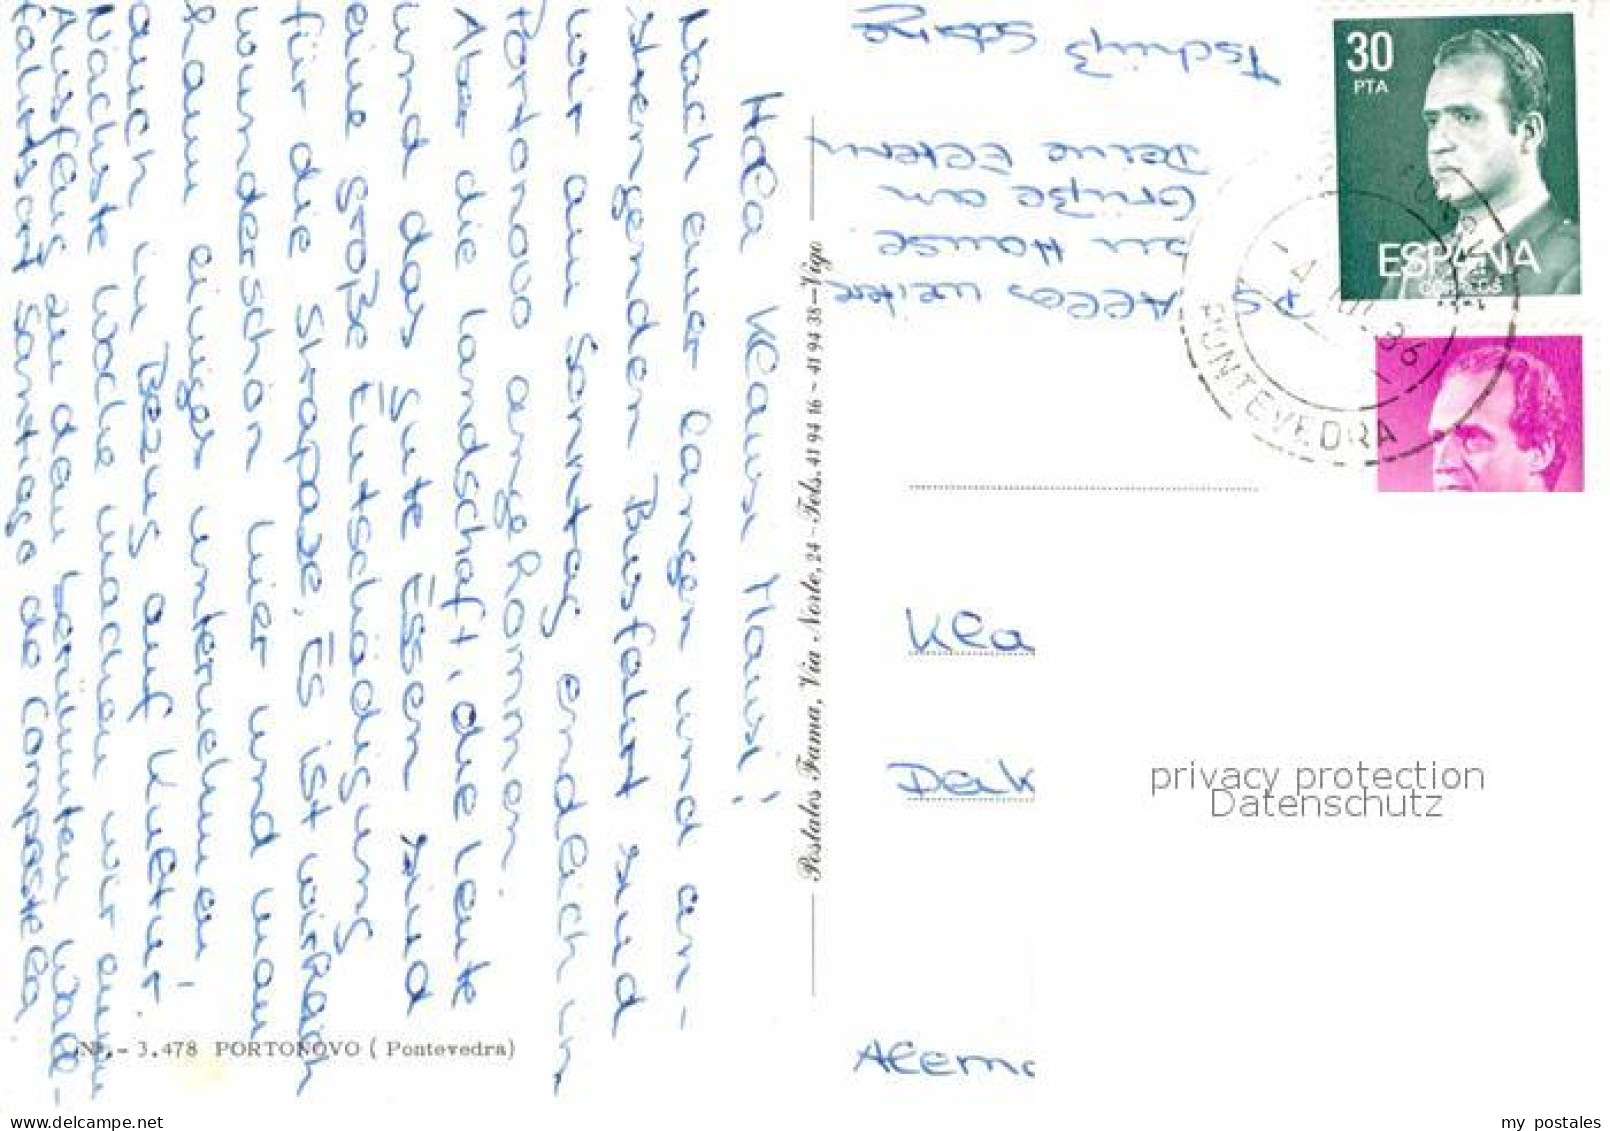 Halla Klausi Mausi!
Nach einer langen und an-
strengenden Busfahrt sind
wir am Sonntag endlich in
Portonovo angekommen.
Aber die Landschaft, die Leute
und das gute Essen sind
eine große Entschädigung
für die Strapaze. Es ist wirklich
wunderschön hier und man
kann einiges unternehmen
auch in Bezug auf Kultur!
Nächste Woche machen wir einen
Ausflug zu dem berühmten Wall-
fahrtsort Santiago de Compostela
PS Alles weitere
zu Hause.
Grüße an
Deine Eltern
Tschüß Sabine
Nº.- 3.478 PORTONOVO ( Pontevedra)
Postales Fama, Via Norte, 24 - Tels. 41 94 16 - 41 94 38 - Vigo
30
PTA
ESPAÑA
CORREOS
PONTEVEDRA
Kla
Deik
Alema
privacy protection
Datenschutz
my postales